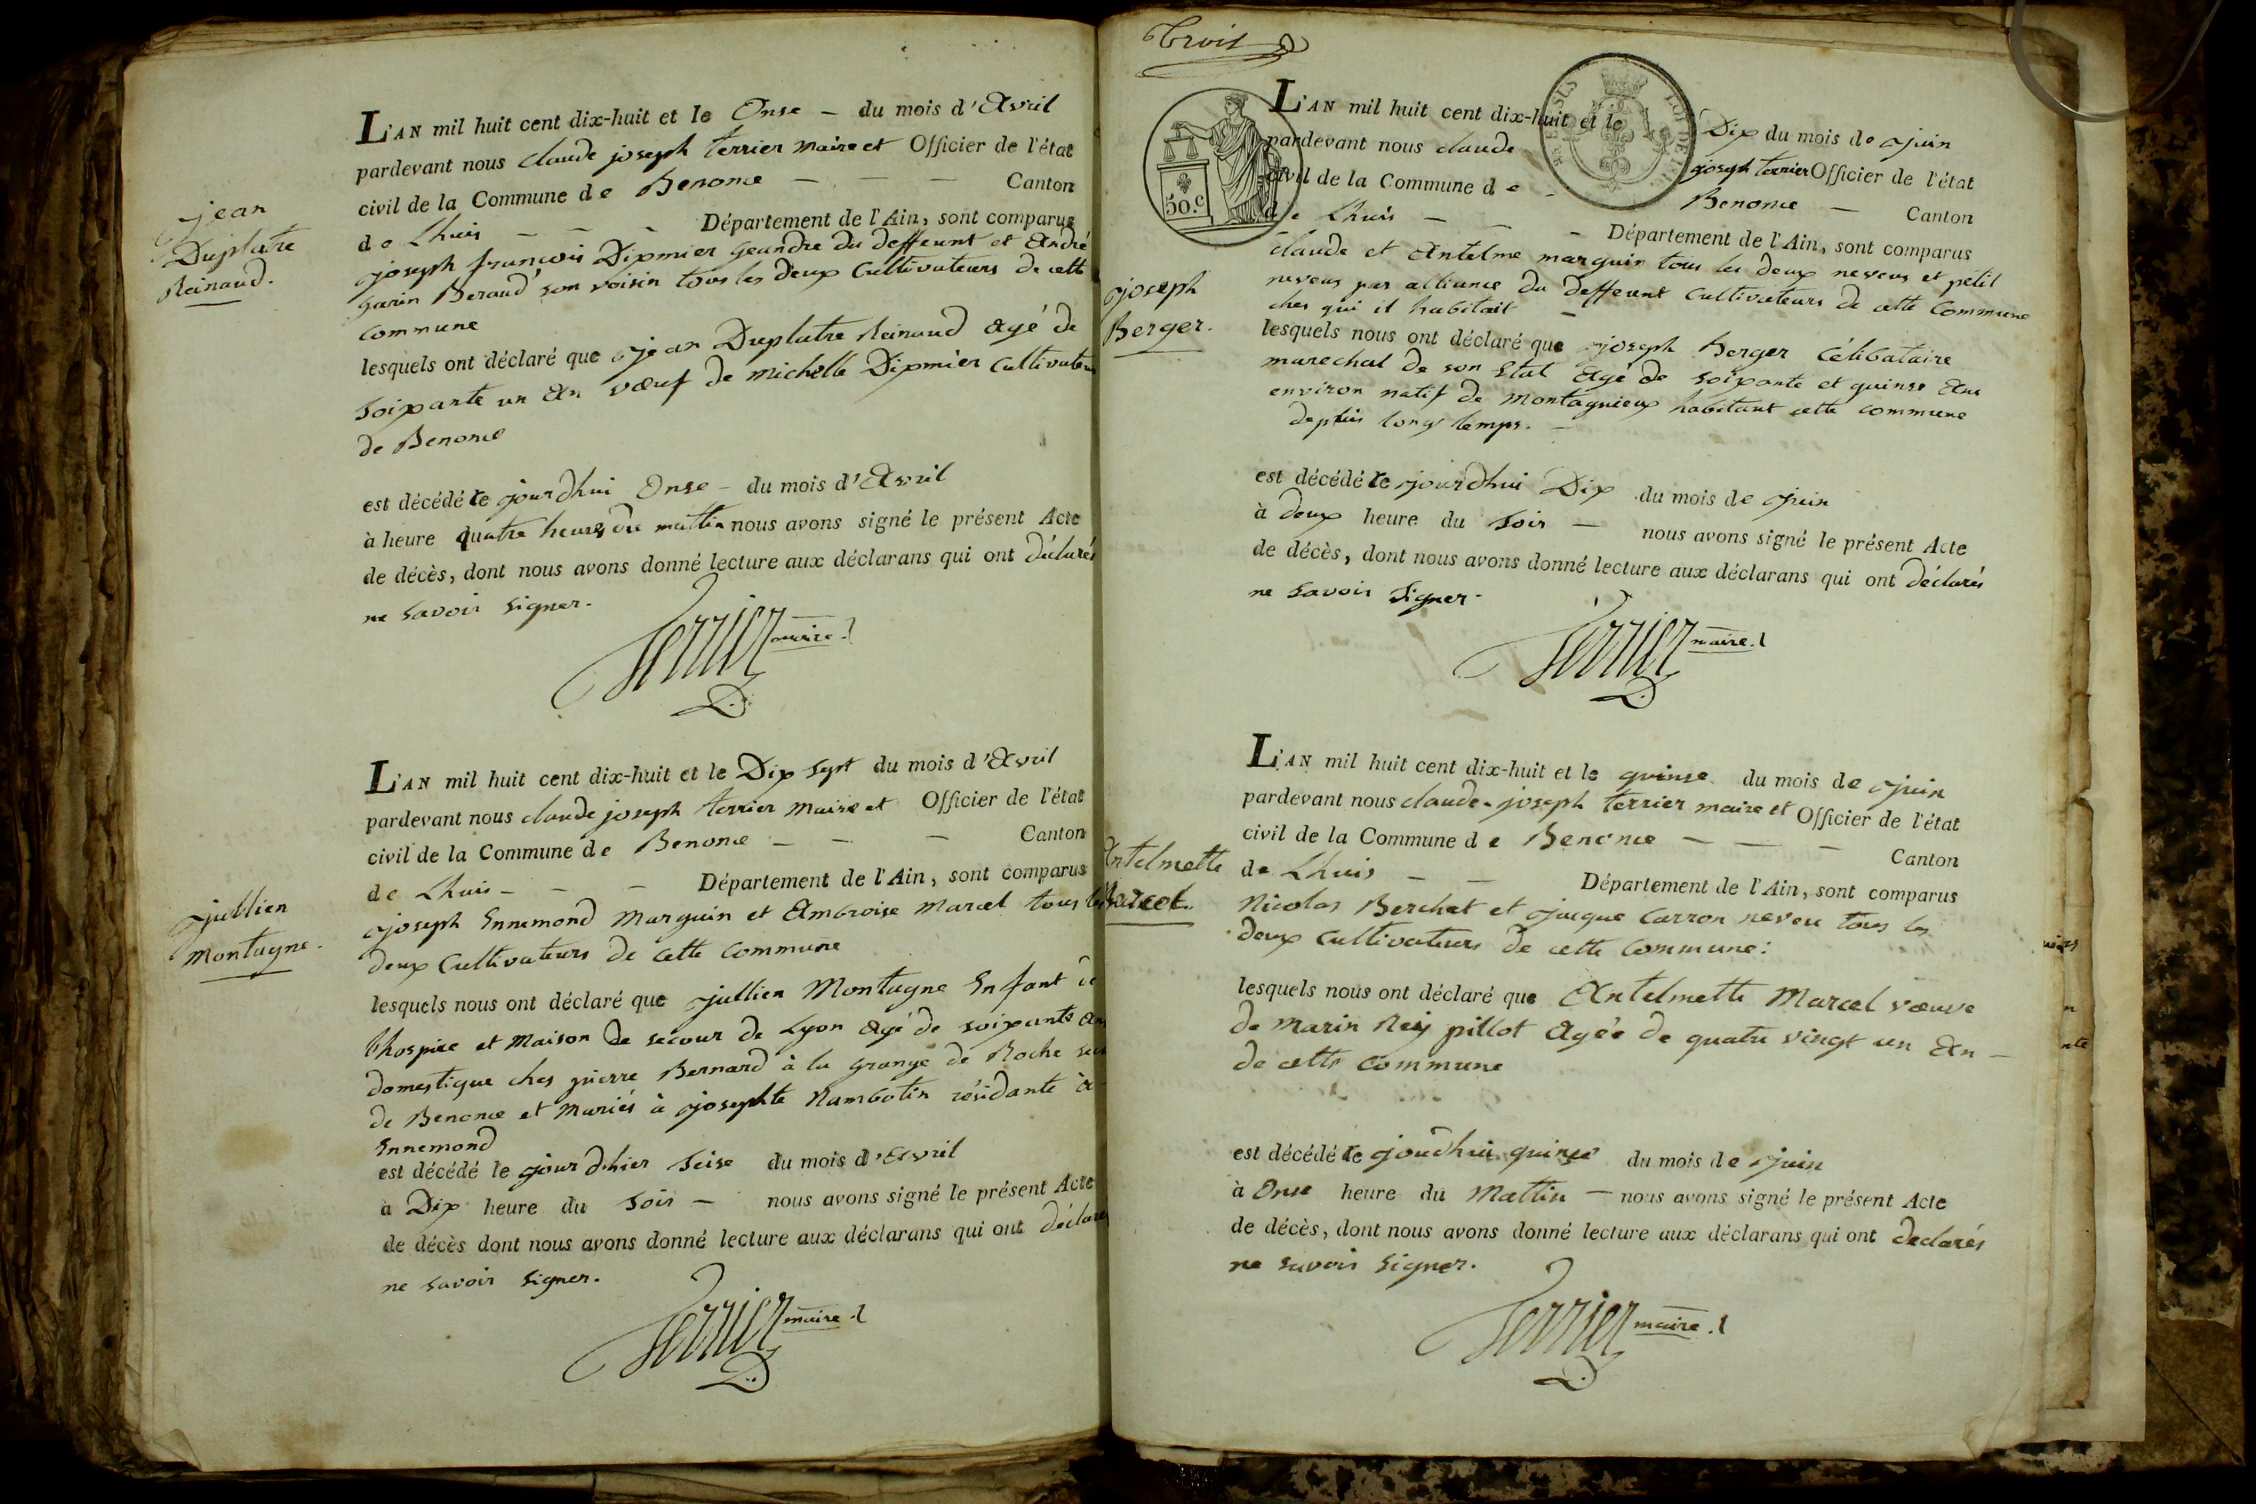 L'AN mil huit cent dix-huit et le Onse - du mois d'Avril
pardevant nous claude joseph terrier maire et Officier de l'état
civil de la Commune de Benonce - - - Canton
de Lhuis - - - Département de l'Ain, sont comparus
joseph francois Dipmier geandre du deffeunt et André
garin Beraud son voisin tous les deux Cultivateurs de cette
commune
jean
Duplatre
Reinaud.
lesquels ont déclaré que jean Duplatre Reinaud Agé de
soixante un An vœuf de michelle Dipmier Cultivateur
de Benonce
est décédé ce jourdhui Onse - du mois d'Avril
à heure quatre heures du mattin nous avons signé le présent Acte
de décès, dont nous avons donné lecture aux déclarans qui ont déclarés
ne savoir signer.
Terrier maire.
L'AN mil huit cent dix-huit et le Dix sept du mois d'Avril
pardevant nous claude joseph terrier maire et Officier de l'état
civil de la Commune de Benonce - - - Canton
de Lhuis - - - Département de l'Ain, sont comparus
joseph Ennemond Marguin et Ambroise Marcel tous les
deux Cultivateurs de cette commune
jullien
montagne.
lesquels nous ont déclaré que jullien Montagne Enfant de
l'hospice et Maison de secour de Lyon Agé de soixante Ans
domestique ches pierre Bernard à la grange de Roche
de Benonce et Mariés à josephte Rambotin résidante à
Ennemond
est décédé le jour d'hier seise du mois d'Avril
à Dix heure du soir - nous avons signé le présent Acte
de décès dont nous avons donné lecture aux déclarans qui ont déclarés
ne savoir signer.
Terrier maire.
Trois
50.c
L'AN mil huit cent dix-huit et le Dix du mois de juin
pardevant nous claude joseph terrier Officier de l'état
civil de la Commune de - Benonce - Canton
de Lhuis - - - Département de l'Ain, sont comparus
claude et Antelme marguin tous les deux neveus et petit
neveus par alliance du deffeunt cultivateurs de cette commune
ches qui il habitait -
joseph
Berger.
lesquels nous ont déclaré que joseph Berger Célibataire
marechal de son Etat Agé de soixante et quinse Ans
environ natif de Montagnieux habitant cette commune
depuis longs temps. -
est décédé ce jourdhui Dix du mois de juin
à deux heure du soir - nous avons signé le présent Acte
de décès, dont nous avons donné lecture aux déclarans qui ont déclarés
ne savoir signer.
Terrier maire.
L'AN mil huit cent dix-huit et le quinse du mois de juin
pardevant nous claude joseph terrier maire et Officier de l'état
civil de la Commune de Benonce - - - Canton
de Lhuis - - Département de l'Ain, sont comparus
Nicolas Berchet et jacque Carron neveu tous les
deux Cultivateurs de cette commune:
Antelmette
Marcel.
lesquels nous ont déclaré que Antelmette Marcel vœuve
de Marin Rey pillot Agée de quatre vingt un An -
de cette commune
est décédé ce joudhui quinse du mois de juin
à Onse heure du Mattin - nous avons signé le présent Acte
de décès, dont nous avons donné lecture aux déclarans qui ont declarés
ne savoir signer.
Terrier maire.